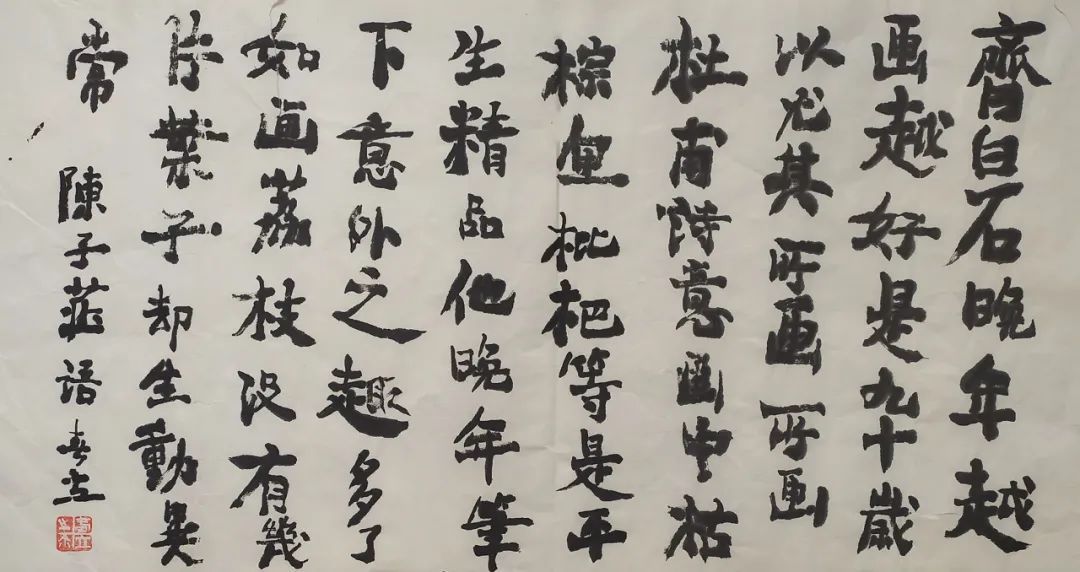 齊白石晚年越
画越好是九十歲
以尤其所画所画
杜甫詩意画中枯
棕魚枇杷等是平
生精品他晚年筆
下意外之趣多了
如画荔枝没有幾
片葉子却生動異
常 陳子莊語